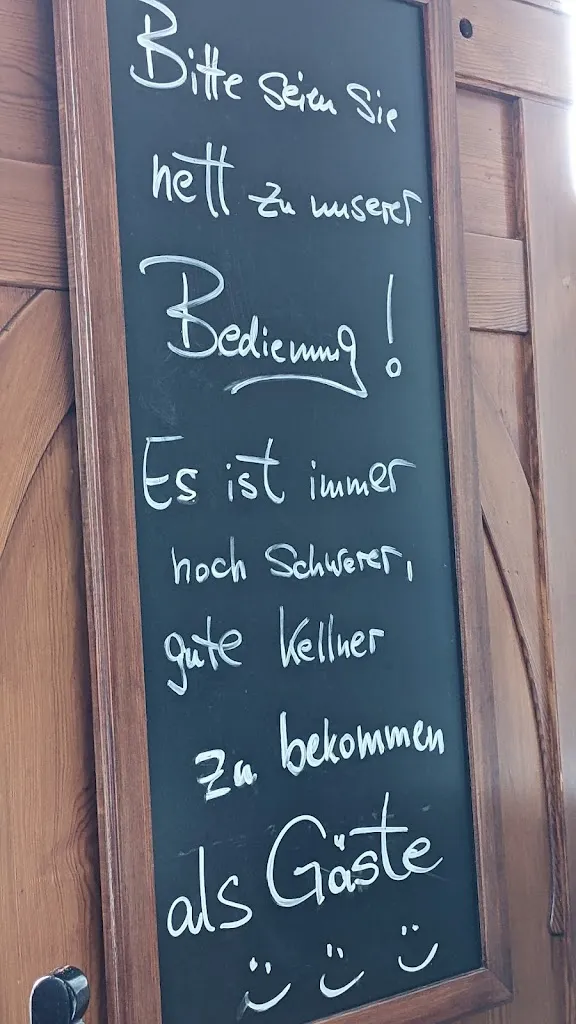 Bitte seien Sie
nett zu unserer
Bedienung!
Es ist immer
noch Schwerer,
gute Kellner
zu bekommen
als Gäste